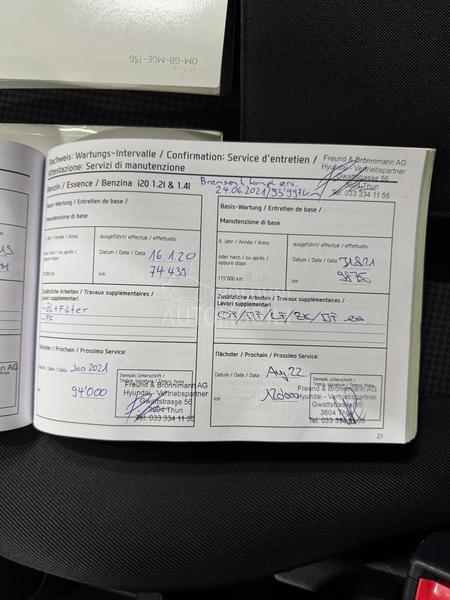 OM-GB-MGE-15G
Nachweis: Wartungs-Intervalle / Confirmation: Service d'entretien /
Attestazione: Servizi di manutenzione
Freund & Brönnimann AG
Hyundai - Vertriebspartner
Gwattstrasse 56
3604 Thun
Tel. 033 334 11 55
Benzin / Essence / Benzina i20 1.2l & 1.4l
24.06.2021/93'997km
Basis-Wartung / Entretien de base /
Manutenzione di base
5. Jahr / Année / Anno
ausgeführt / effectué / effettuato
oder nach / ou après /
oppure dopo
Datum / Date / Data
16.1.20
km
74439
Zusätzliche Arbeiten / Travaux supplémentaires /
Lavori supplementari
- Öl + Filter
Nächster / Prochain / Prossimo Service:
Datum / Date / Data
Jan 2021
km
94'000
Stempel, Unterschrift /
Timbre, signature / Timbro, firma
Freund & Brönnimann AG
Hyundai - Vertriebspartner
Gwattstrasse 56
3604 Thun
Tel. 033 334 11 55
Basis-Wartung / Entretien de base /
Manutenzione di base
6. Jahr / Année / Anno
ausgeführt / effectué / effettuato
oder nach / ou après /
oppure dopo
Datum / Date / Data
115'000 km
km
Zusätzliche Arbeiten / Travaux supplémentaires /
Lavori supplementari
Nächster / Prochain / Prossimo Service:
Datum / Date / Data
Aug 22
km
120000
Stempel, Unterschrift /
Timbre, signature / Timbro, firma
Freund & Brönnimann AG
Hyundai - Vertriebspartner
Gwattstrasse 56
3604 Thun
Tel. 033 334 11 55
21